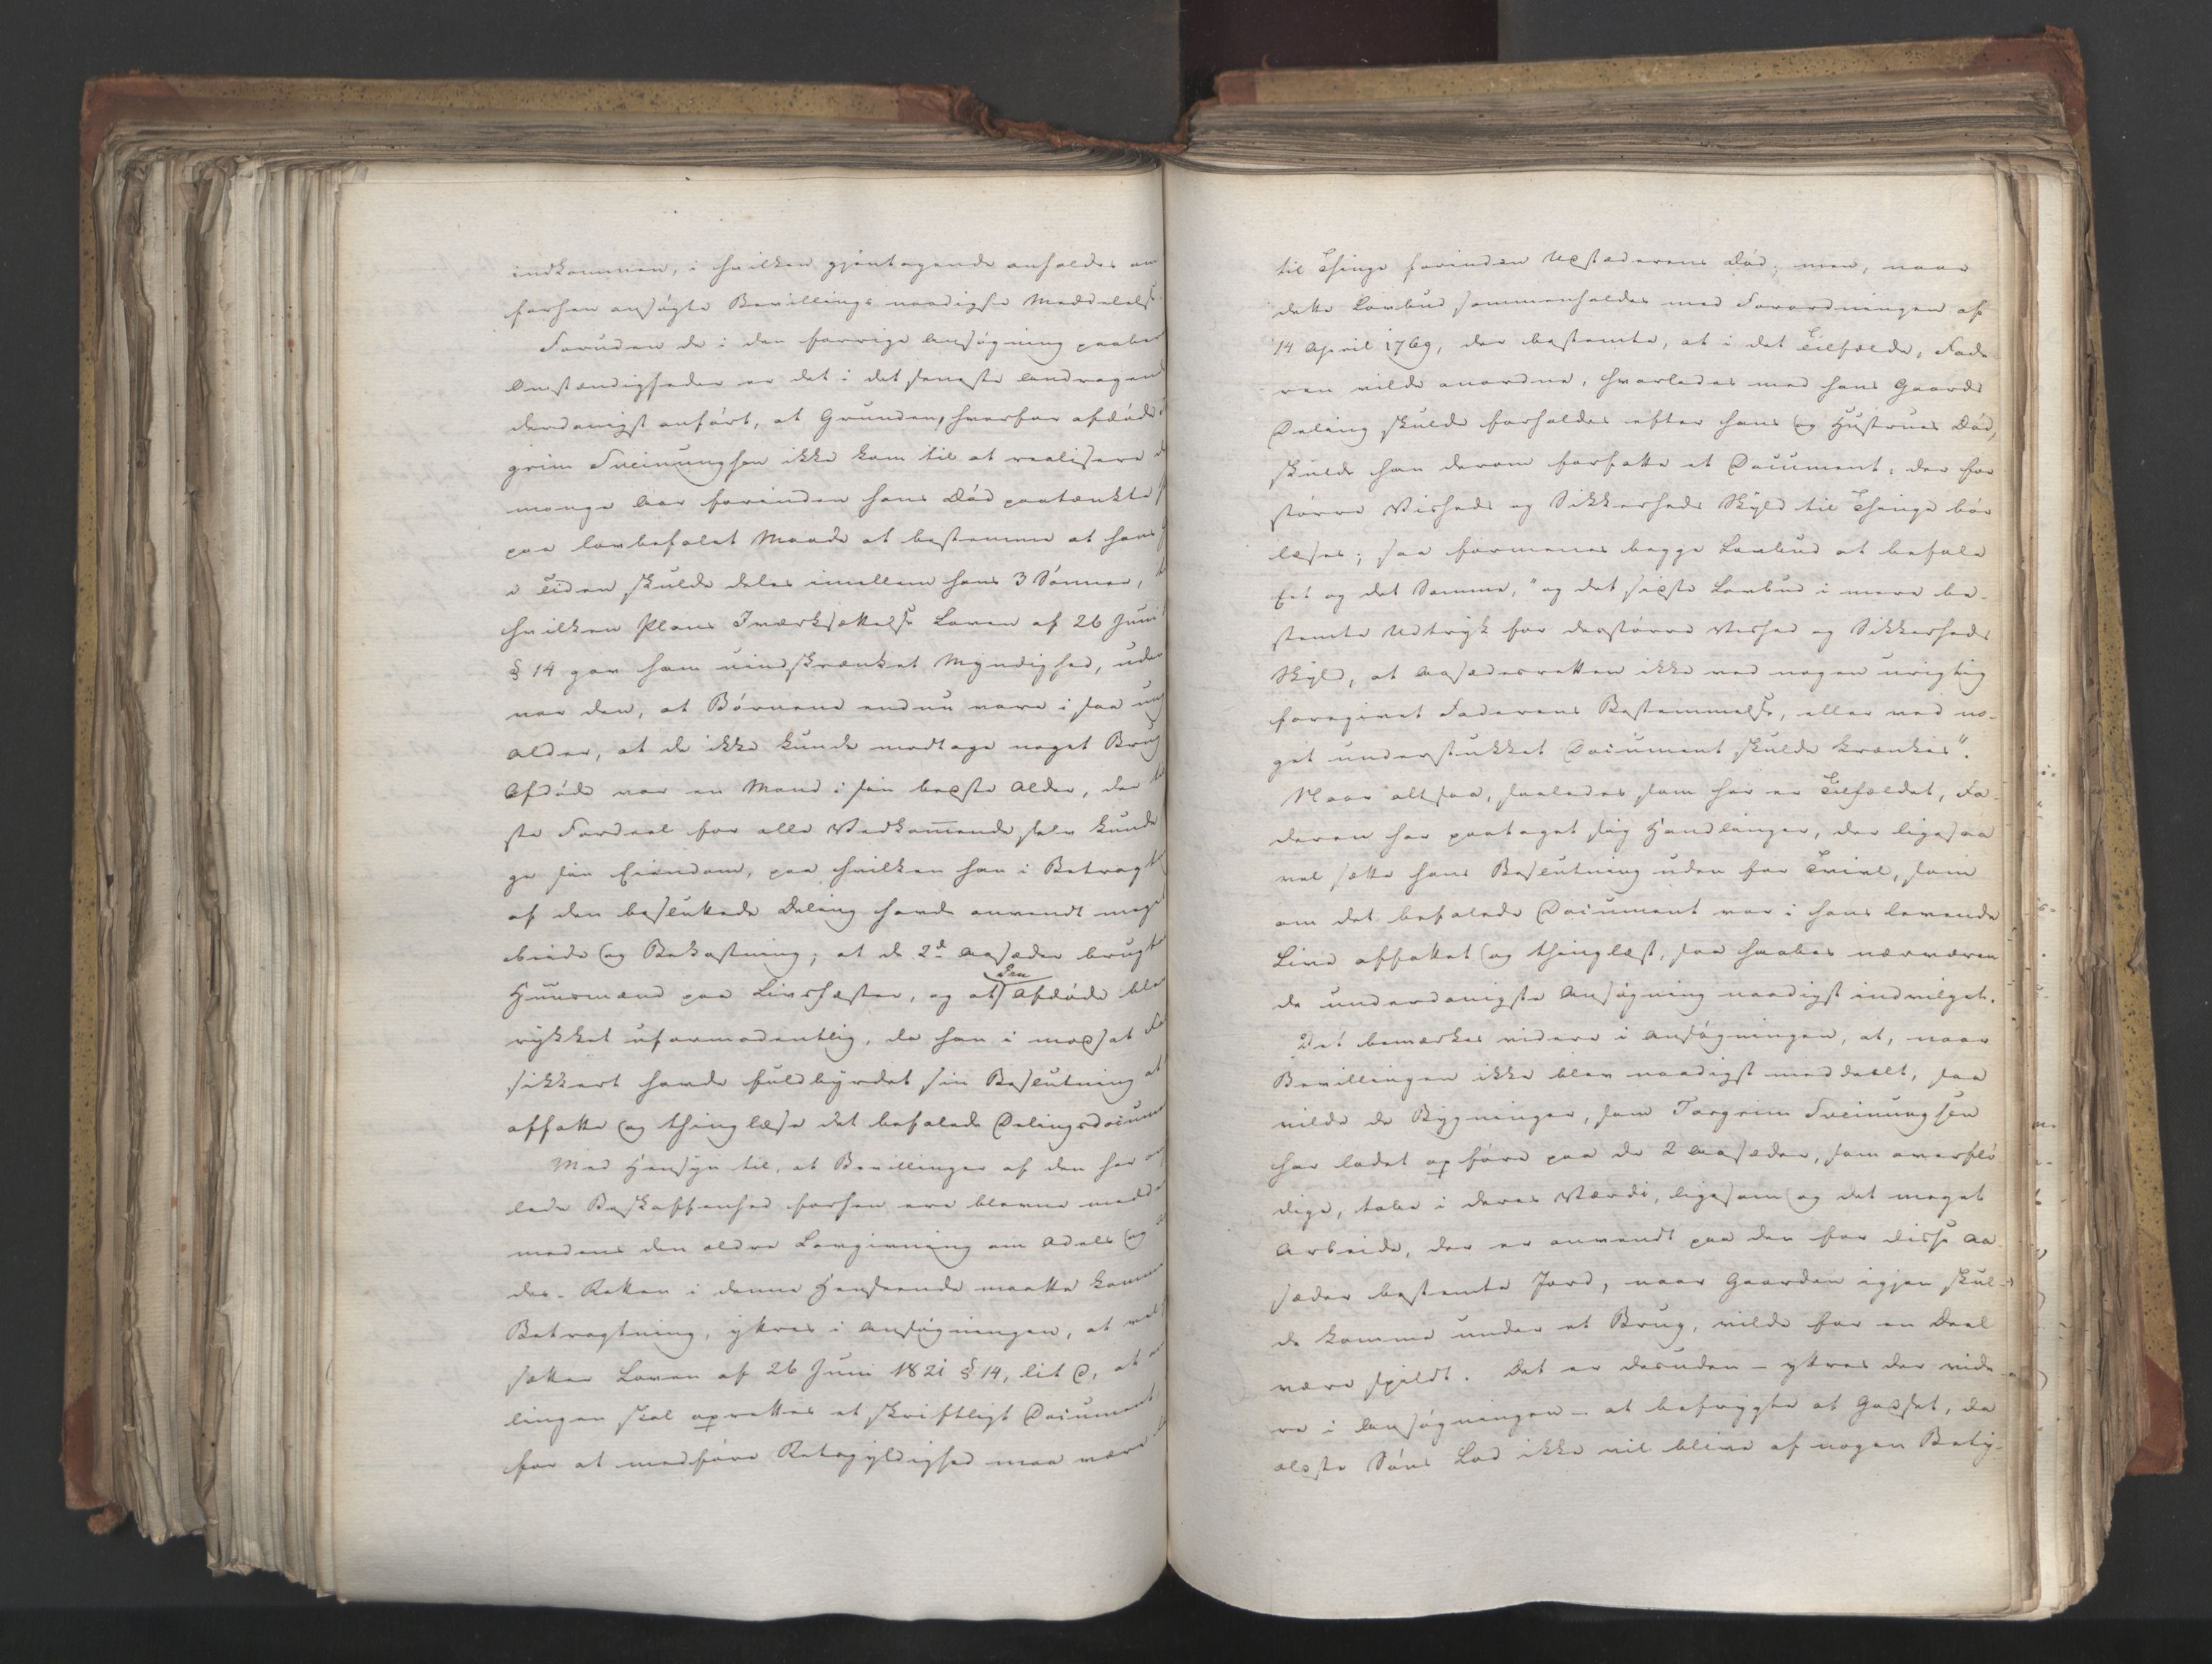 indkommen, i hvilken gjentagende anholdes om
forhen ansøgte Bevillings naadigste Meddelelse.
Foruden de i den forrige Ansøgning paabe
Omstændigheder er det i det seneste Andragen
derdanigst anført, at Grunden, hvorfor afdøde
grim Sveinungsen ikke kom til at realisere d
mange Aar forinden hans Død paatænkte
paa lovbefalet Maade at bestemme at hans
i Tiden skulde deles imellem hans 3 Sønner,
hvilken Plans Iværksættelse Loven af 26 Juni
§ 14 gav ham uindskrænket Myndighed, uden
var den, at Børnene endnu vare i saa ung
Alder, at de ikke kunde modtage noget Brug
Afdøde var en Mand i sin beste Alder, der
ste Fordeel for alle Vedkommende selv kunde
ge sin Eiendom, paa hvilken han i Betragt
af den besluttede Deling havde anvendt meget
beide og Bekostning; at de 2de Aasæder brugte
Huusmænd paa Livsfæster, og at den Afdøde blev
rykket uformodentlig, da han i modsat Fa
sikkert havde fuldbyrdet sin Beslutning at
affatte og thinglæse det befalede Delingsdocume
Med Hensyn til, at Bevillinger af den her om
lede Beskaffenhed forhen ere blevne medde
medens den ældre Lovgivning om Odels og
des-Retten i denne Henseende maatte komme
Betragtning, yttres i Ansøgningen, at vel
sætter Loven af 26 Juni 1821 § 14, lit c, at
lingen skal oprettes et skriftligt Document
for at medføre Retsgyldighed maa være
til Thinge forinden Udstederens Død; men, naar
dette Lovbud sammenholdes med Forordningen af
14 April 1769, der bestemte, at i det Tilfælde, Fade
ren vilde anordne, hvorledes med hans Gaards
Deling skulde forholdes efter hans og Hustrues Død,
skulde han derom forfatte et Document, der for
større Visheds og Sikkerheds Skyld til Thinge bør
læses; saa formenes begge Lovbud at befale
Eet og det Samme, "og det sidste Lovbud i mere be-
stemte Udtryk for desstørre Vished og Sikkerheds
Skyld, at Aasædesretten ikke ved nogen urigtig
foregivet Faderens Bestemmelse, eller ved no-
get understukket Document skulde krænkes".
Naar altsaa, saaledes som her er Tilfældet, Fa-
deren har paataget sig Handlinger, der ligesaa
vel sætte hans Beslutning uden for Tvivl, som
om det befalede Document var i hans levende
Live affattet og thinglæst, saa haabes nærværen
de underdanigste Ansøgning naadigst indvilget.
Det bemærkes videre i Ansøgningen, at, naar
Bevillingen ikke blev naadigst meddeelt, saa
vilde de Bygninger, som Torgrim Sveinungsen
har ladet opføre paa de 2 Aasæder, som overflø
dige, tabe i deres Værdi, ligesom og det meget
Arbeide, der er anvendt paa den for disse Aa
sæder bestemte Jord, naar Gaarden igjen skul-
de komme under et Brug, vilde for en Deel
være spildt. Det er desuden - yttres der vide
re i Ansøgningen - at befrygte at Godset, da
ældste Søns Lod ikke vil blive af nogen Bety-